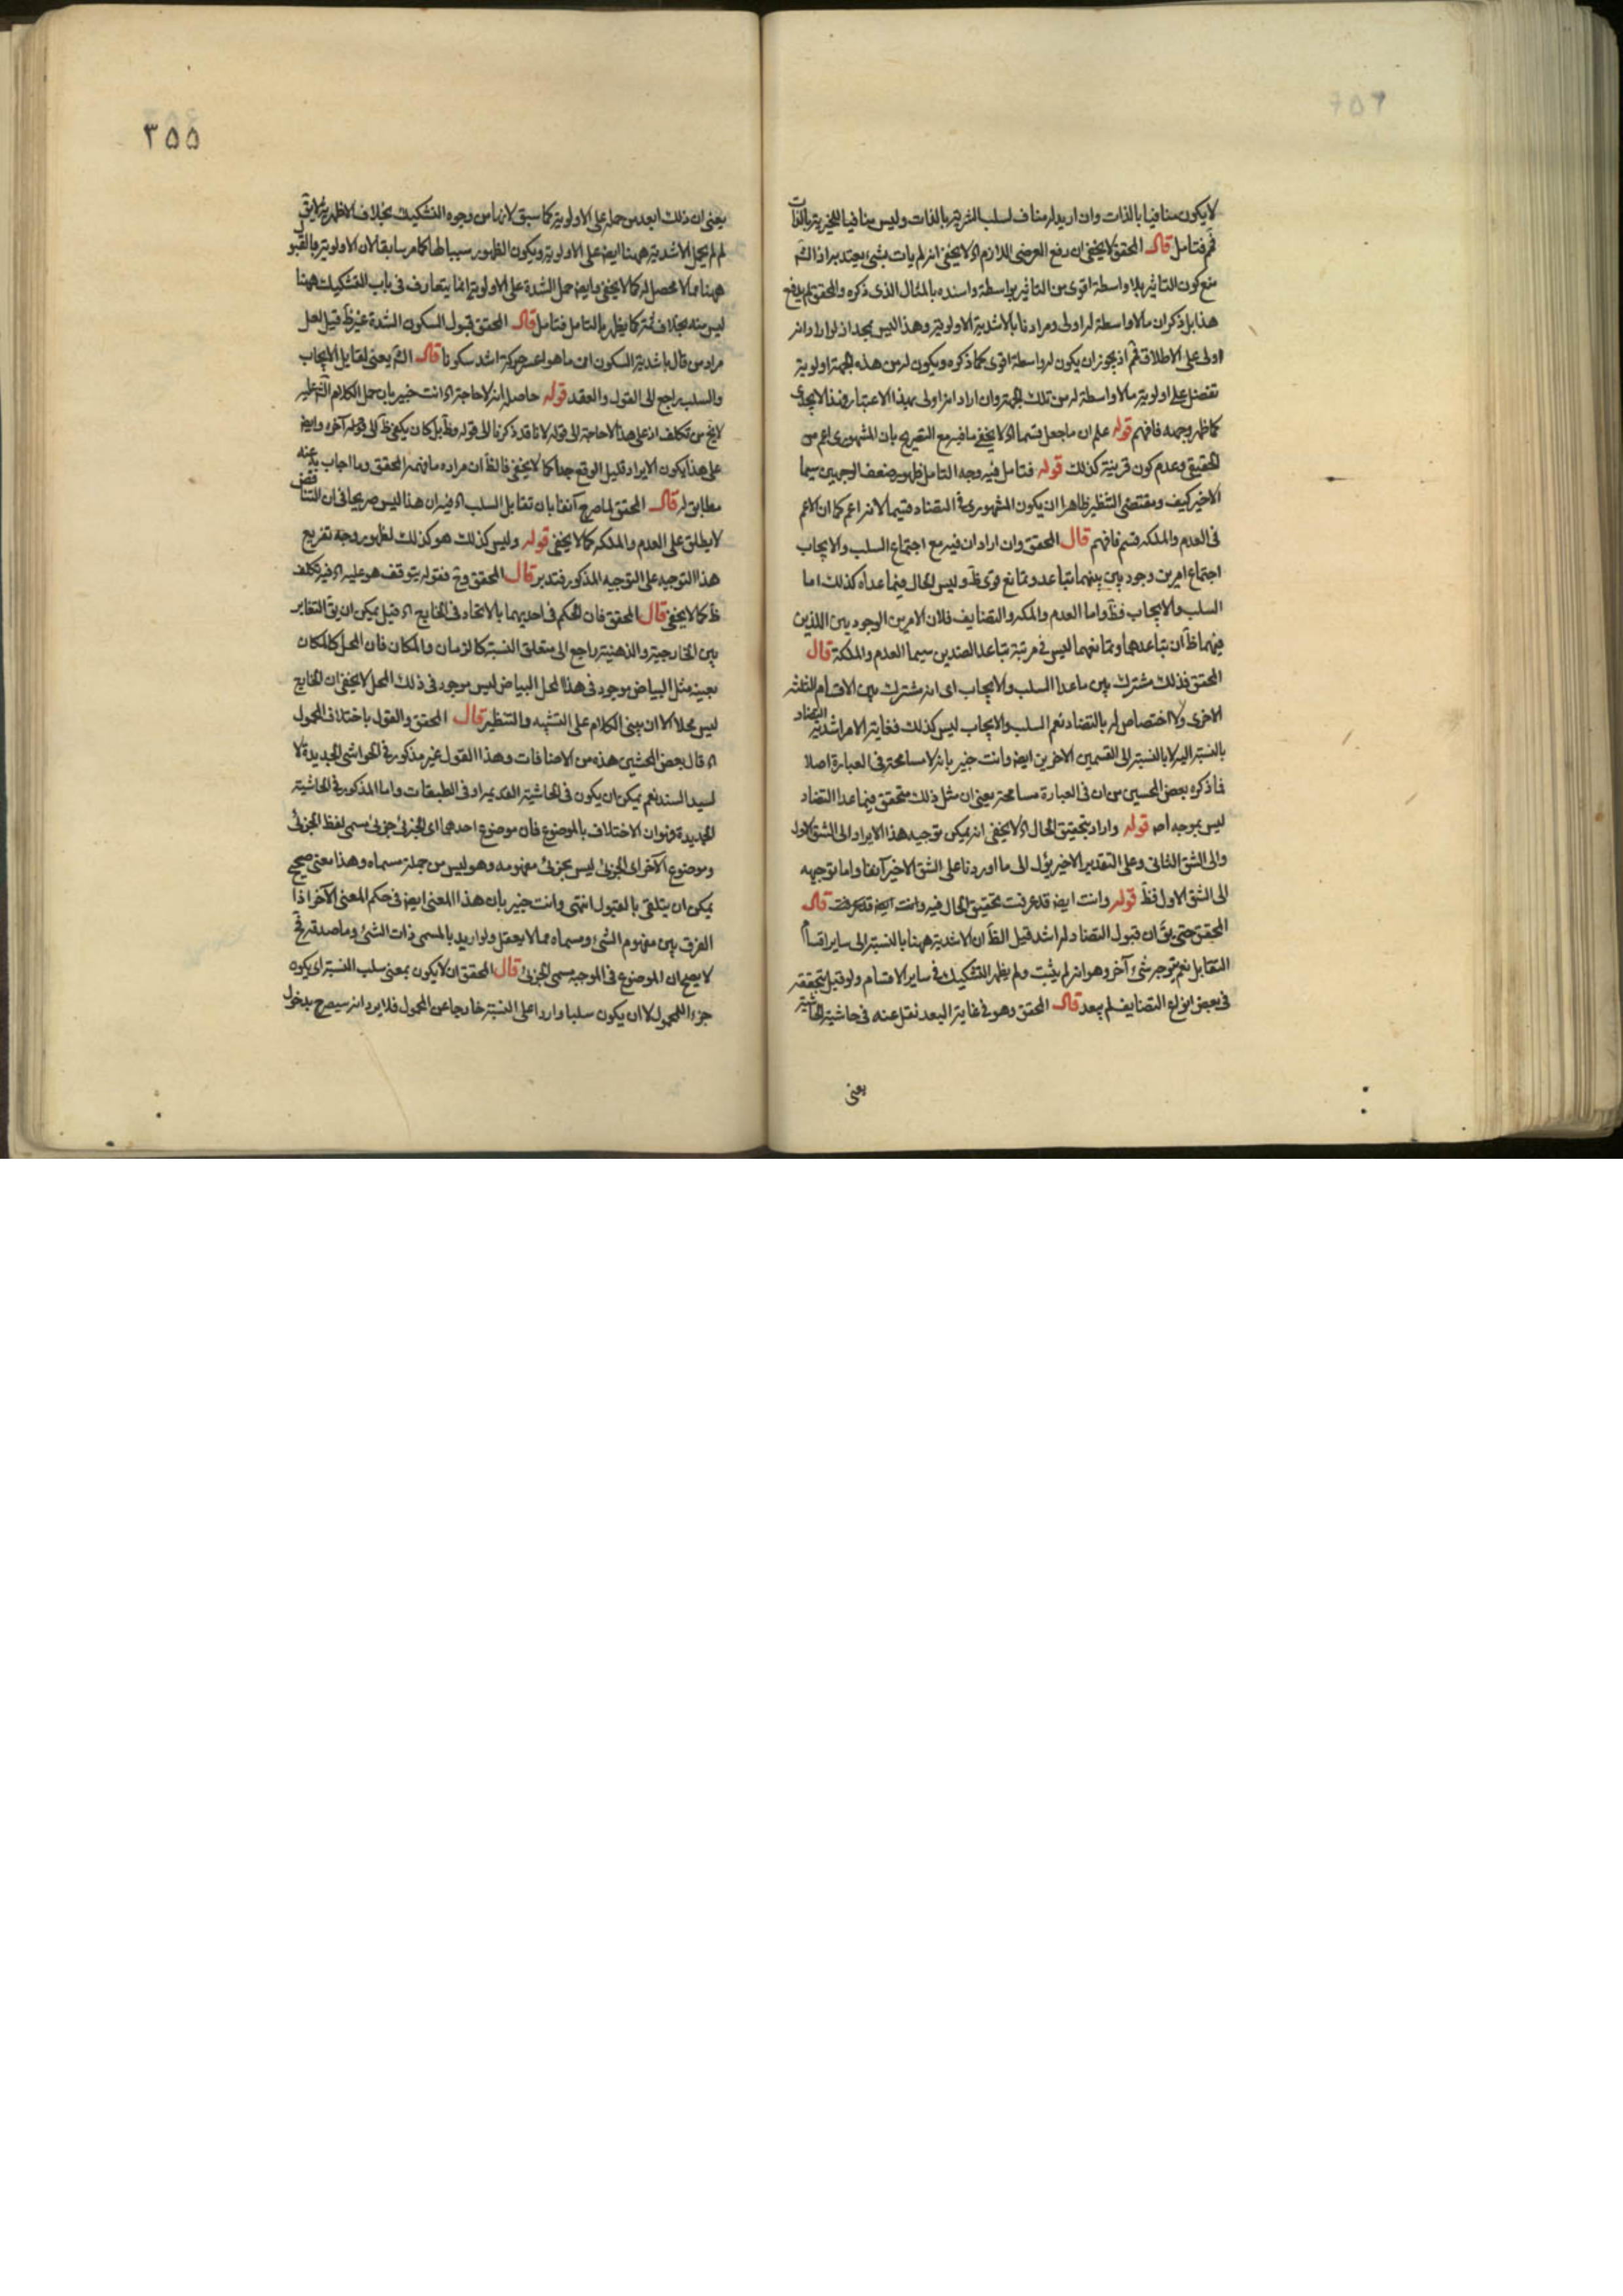 لا يكون منافيا بالذات وان اريد له مناف لسلب الشرية بالذات وليس منافيا للخيرية بالذات
ثم فتامل قال المحقق لا يخفى ان رفع العرضى اللازم اه لا يخفى انه لم يات بشئ يعتد به اذ الشم
منع كون التاثير بلا واسطة اقوى من التاثير بواسطة واسنده بالمثال الذى ذكره والمحقق لم يدفع
هذا بل ذكر ان ما لا واسطة له اولى ومرادنا بالاشدية الاولوية وهذا ليس بجد اذ لو اراد انه
اولى على الاطلاق ثم اذ يجوز ان يكون له واسطة اقوى كما ذكره ويكون له من هذه الجهة اولوية
تفضل على اولوية ما لا واسطة له من تلك الجهة وان اراد انه اولى بهذا الاعتبار فهذا لا يجدى
كما ظهر وجهه فافهم قوله علم ان ما جعل قسما اه لا يخفى ما فيه مع التصريح بان المشهورى اعم من
الحقيقى وعدم كون قرينة كذلك قوله فتامل فيه وجه التامل ظهور ضعف الوجهين سيما
الاخير كيف ومقتضى التنظير ظاهرا ان يكون المشهورى فى التضاد قسيما لانه اعم كما ان الاعم
فى العدم والملكه قسم فافهم قال المحقق وان اراد ان فيه مع اجتماع السلب والايجاب
اجتماع امرين وجوديين بينهما تباعد وتمانع قوى ظ وليس الحال فيما عداه كذلك اما
السلب والايجاب فظ واما العدم والملكه والتضايف فلان الامرين الوجوديين اللذين
فيهما ظ ان تباعدهما وتمانعهما ليس فى مرتبة تباعد الضدين سيما العدم والملكة قال
المحقق فذلك مشترك بين ما عدا السلب والايجاب اى انه مشترك بين الاقسام الثلثه
الاخرى ولا اختصاص له بالتضاد نعم السلب والايجاب ليس كذلك فغاية الامر اشدية التضاد
بالنسبة اليه لا بالنسبة الى القسمين الاخرين ايضا وانت خبير بانه لا مسامحة فى العبارة اصلا
فما ذكره بعض المحشين من ان فى العبارة مسامحة يعنى ان مثل ذلك متحقق فيما عدا التضاد
ليس بموجه اصلا قوله واراد بتحقيق الحال اه لا يخفى انه يمكن توجيه هذا الايراد الى الشق الاول
والى الشق الثانى وعلى التقدير الاخير يؤل الى ما اوردنا على الشق الاخير آنفا واما توجيهه
الى الشق الاول فظ قوله وانت ايضا قد عرفت تحقيق الحال فيه وانت ايضا قد عرفت قال
المحقق حتى يق ان قبول التضاد له اشد قيل الظ ان الاشدية ههنا بالنسبة الى ساير اقسام
التقابل نعم يتوجه شئ آخر وهو انه لم يثبت ولم يظهر التشكيك فى ساير الاقسام ولو قيل بتحققه
فى بعض انواع التضايف لم يبعد قال المحقق وهو فى غاية البعد نقل عنه فى حاشية الحاشية
يعنى
٣٥٥
يعنى ان ذلك ابعد من حمله على الاولوية كما سبق لانها من وجوه التشكيك بخلاف الاظهرية لا يق
لم لم يحمل الاشدية ههنا ايضا على الاولوية ويكون الظهور سببا لها كما مر سابقا لان الاولوية بالقبول
ههنا مما لا محصل له كما لا يخفى وايضا حمل الشدة على الاولوية انما يتعارف فى باب التشكيك ههنا
ليس منه بخلاف ثمة كما يظهر بالتامل فتامل قال المحقق قبول السكون الشدة غير ظ قيل لعل
مراد من قال باشدية السكون ان ما هو اعسر حركة اشد سكونا قال الشم يعنى تقابل الايجاب
والسلب راجع الى القول والعقد قوله حاصله انه لا حاجة اه انت خبير بان حمل الكلام الشم عليه
لا يخ من تكلف اذ على هذا لا حاجة الى قوله لانا قد ذكرنا الى قوله وظ بل كان يكفى ظ الى قوله آخره وايضا
على هذا يكون الايراد قليل الوقع جدا كما لا يخفى فالظ ان مراده ما فهمه المحقق وما اجاب به عنه
مطابق له قال المحقق لما صرح آنفا بان تقابل السلب اه فيه ان هذا ليس صريحا فى ان التناقض
لا يطلق على العدم والملكه كما لا يخفى قوله وليس كذلك هو كذلك لظهور وجه تفريع
هذا التوجيه على التوجيه المذكور فتدبر قال المحقق وح فقوله يتوقف هو عليه اه فيه تكلف
ظ كما لا يخفى قال المحقق فان الحكم فى احديهما بالاتحاد فى الخارج اه قيل يمكن ان يق التغاير
بين الخارجية والذهنية راجع الى متعلق النسبة كالزمان والمكان فان المحل كالمكان
بعينه مثل البياض موجود فى هذا المحل البياض ليس موجود فى ذلك المحل لا يخفى ان الخارج
ليس محلا الا ان يبنى الكلام على التشبيه والتنظير قال المحقق والقول باختلاف المحمول
اه قال بعض المحشين هذه من الاضافات وهذا القول غير مذكور فى الحواشى الجديدة لا
لسيد السند نعم يمكن ان يكون فى الحاشية القديمة او فى الطبقات واما المذكور فى الحاشية
الجديدة فهو ان الاختلاف بالموضوع فان موضوع احدهما اى الجزئى جزئى مسمى لفظ الجزئى
وموضوع الآخر اى الجزئى ليس بجزئى مفهومه وهو ليس من جملة مسماه وهذا معنى صحيح
يمكن ان يتلقى بالقبول انتهى وانت خبير بان هذا المعنى ايضا فى حكم المعنى الآخر اذ
الفرق بين مفهوم الشئ ومسماه مما لا يعقل ولو اريد بالمسمى ذات الشئ وما صدقه فح
لا يصح ان الموضوع فى الموجبة مسمى الجزئى قال المحقق ان لا يكون بمعنى سلب النسبة اى يكون
جزءا للمحمول لا ان يكون سلبا واردا على النسبة خارجا عن المحمول فلا يرد انه سيصرح بدخول